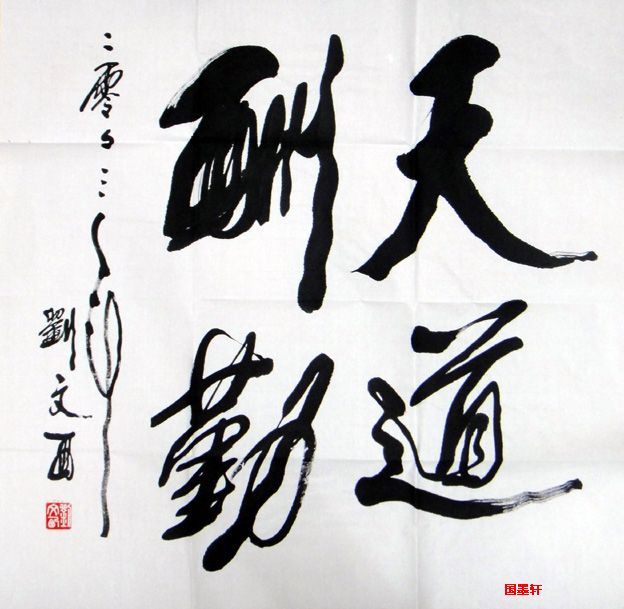 天道
酬勤
二零零三年
劉文西
国墨轩